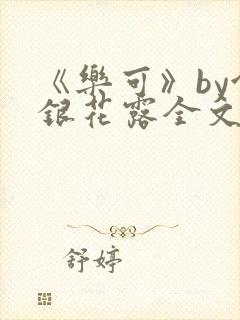 《樂可》by
銀花露全文
舒婷